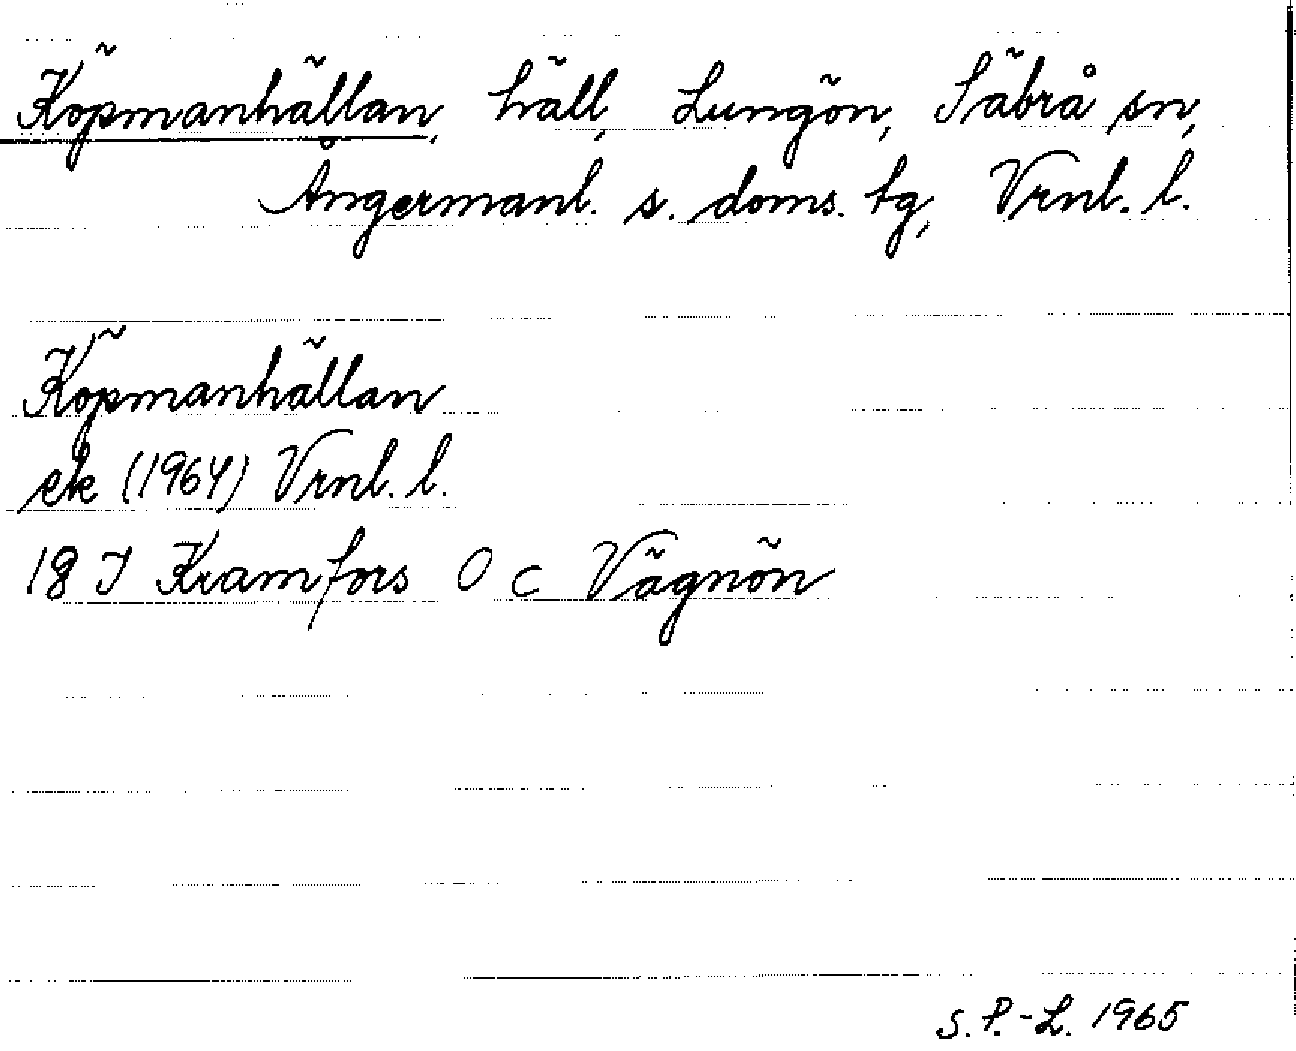 Köpmanhällan, häll, Lungön, Säbrå sn,
Ångermanl. s. doms. tg, Vrnl. l.
Köpmanhällan
ek (1964) Vrnl. l.
18 I Kramfors O c Vägnön
S. P.-L. 1965